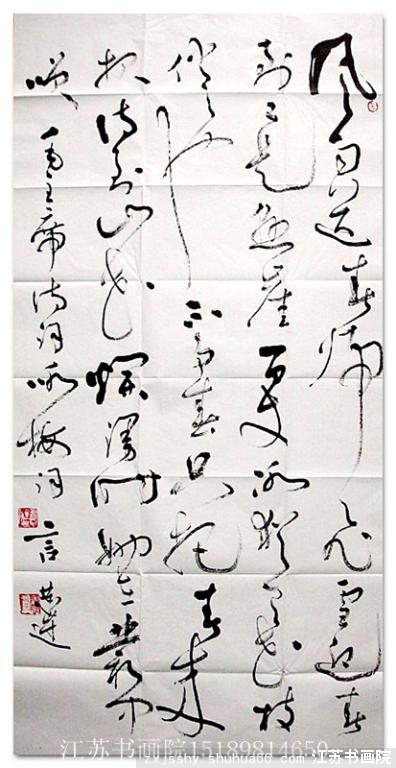 风雨送春归飞雪迎春
到已是悬崖百丈冰犹有花枝
俏俏也不争春只把春来
报待到山花烂漫时她在丛中
笑 毛主席诗词咏梅词 言恭达
江苏书画院15189814659
zxjsshy.shuhua66.com 江苏书画院